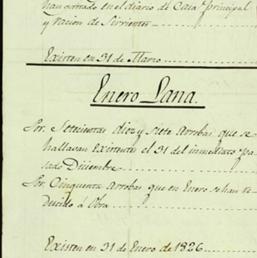 han entrado en el diario de Casa Principal
y racion de Sirvientes
Existen en 31 de Marzo
Enero Lana.
Por Setecientas diez y siete Arrobas que se
hallavan Existentes el 31 del inmediato pa-
sado Diciembre
Por Cinquenta Arrobas que en Enero se han re-
ducido á Obra
Existen en 31 de Enero de 1826